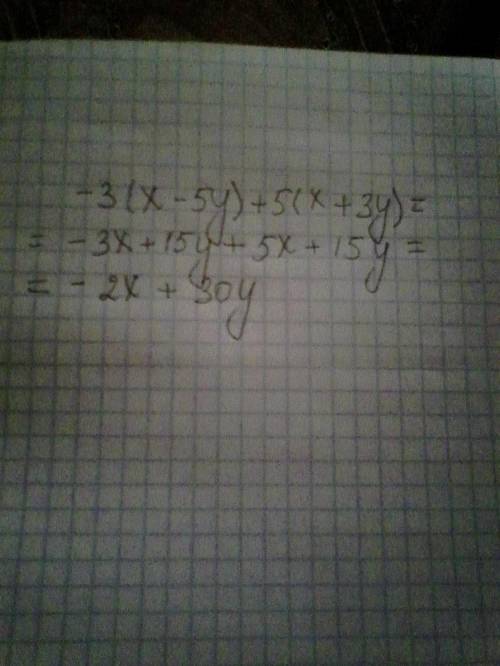 -3(x-5y)+5(x+3y)=
= -3x+15y+5x+15y=
= -2x+30y